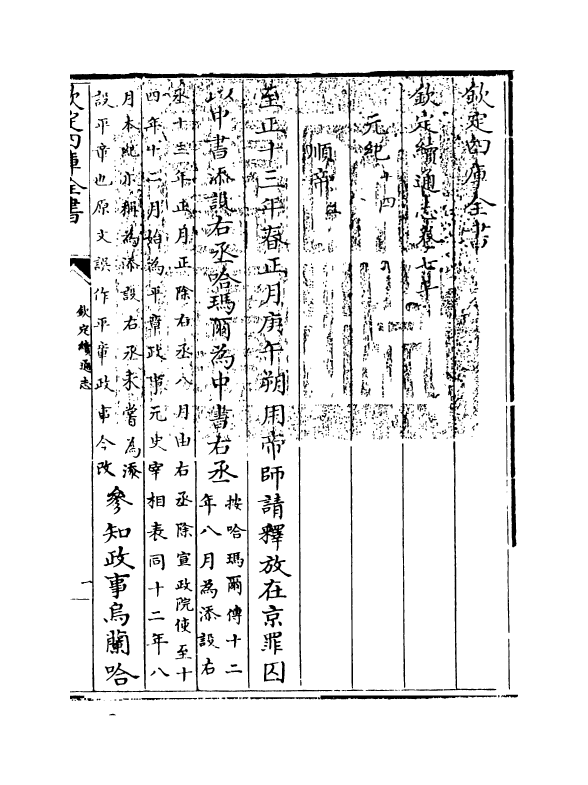 欽定四庫全書
欽定續通志卷七十
元紀十四
順帝四
至正十三年春正月庚午朔用帝師請釋放在京罪囚
以中書添設右丞哈瑪爾為中書右丞按哈瑪爾傳十二
年八月為添設右
丞十三年正月正除右丞八月由右丞除宣政院使至十
四年十二月始為平章政事元史宰相表同十二年八
月本紀亦稱為添設右丞未嘗為添
設平章也原文誤作平章政事今改參知政事烏蘭哈
欽定四庫全書
欽定續通志
一